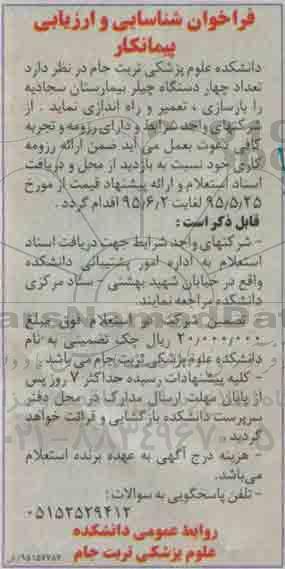 فراخوان شناسایی و ارزیابی
پیمانکار
دانشکده علوم پزشکی تربت جام در نظر دارد
تعداد چهار دستگاه چیلر بیمارستان سجادیه
را بازسازی ، تعمیر و راه اندازی نماید . از
شرکتهای واجد شرایط و دارای رزومه و تجربه
کافی دعوت بعمل می آید ضمن ارائه رزومه
کاری خود نسبت به بازدید از محل و دریافت
اسناد استعلام و ارائه پیشنهاد قیمت از مورخ
۹۵/۵/۲۵ لغایت ۹۵/۶/۲ اقدام گردد .
قابل ذکر است :
- شرکتهای واجد شرایط جهت دریافت اسناد
استعلام به اداره امور پشتیبانی دانشکده
واقع در خیابان شهید بهشتی - ستاد مرکزی
دانشکده مراجعه نمایند.
- تضمین شرکت در استعلام فوق مبلغ
۲۰/۰۰۰/۰۰۰ ریال چک تضمینی به نام
دانشکده علوم پزشکی تربت جام می باشد .
- کلیه پیشنهادات رسیده حداکثر ۷ روز پس
از پایان مهلت ارسال مدارک در محل دفتر
سرپرست دانشکده بازگشایی و قرائت خواهد
گردید .
- هزینه درج آگهی به عهده برنده استعلام
می‌باشد.
- تلفن پاسخگویی به سوالات :
۰۵۱۵۲۵۲۹۴۱۲
روابط عمومی دانشکده
علوم پزشکی تربت جام